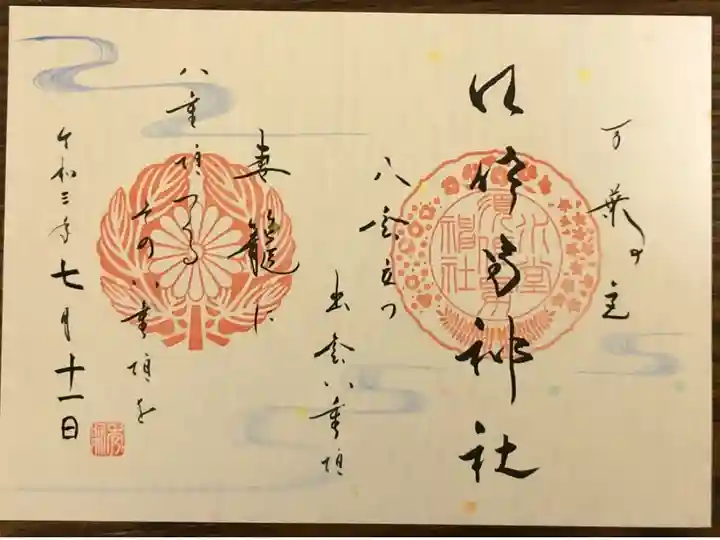 万葉の
神社
八雲立つ
出雲八重垣
妻籠に
八重垣つくる
その八重垣を
令和三年七月十一日